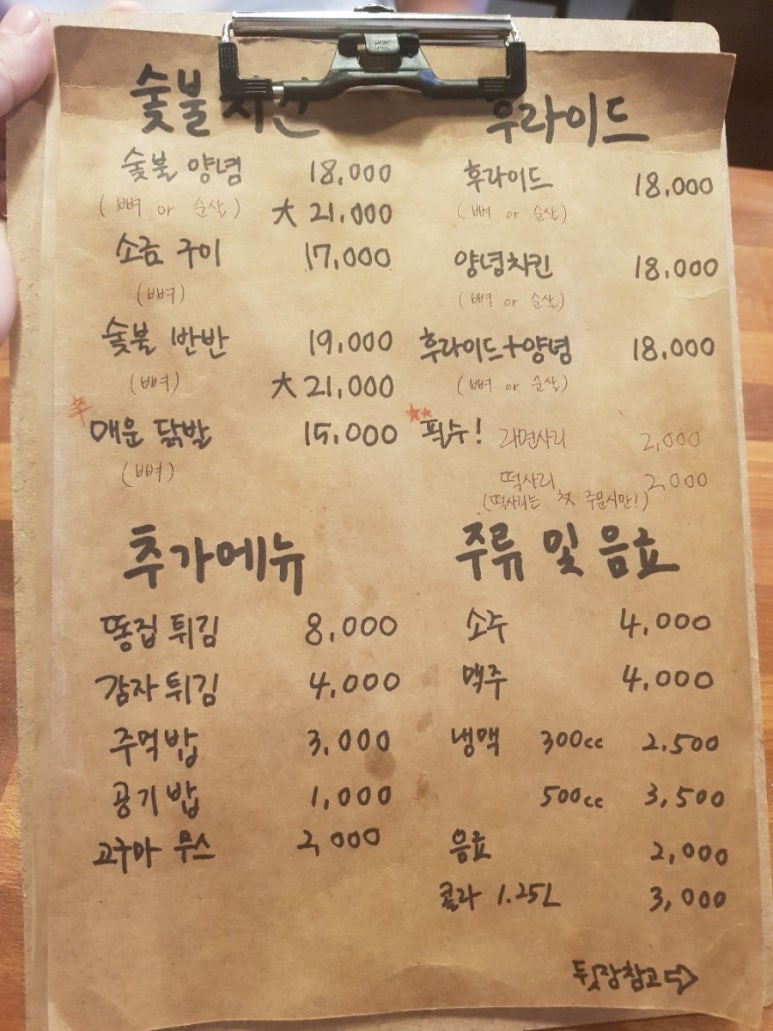 숯불 치킨
숯불 양념 18,000
(뼈 or 순살) 大 21,000
소금 구이 17,000
(뼈)
숯불 반반 19,000
(뼈) 大 21,000
辛 매운 닭발 15,000
(뼈)
후라이드
후라이드 18,000
(뼈 or 순살)
양념치킨 18,000
(뼈 or 순살)
후라이드+양념 18,000
(뼈 or 순살)
필수! 라면사리 2,000
떡사리 2,000
(떡사리는 첫 주문시만!)
추가메뉴
똥집 튀김 8,000
감자 튀김 4,000
주먹밥 3,000
공기밥 1,000
고구마 무스 2,000
주류 및 음료
소주 4,000
맥주 4,000
생맥 300cc 2,500
500cc 3,500
음료 2,000
콜라 1.25L 3,000
뒷장참고⇨